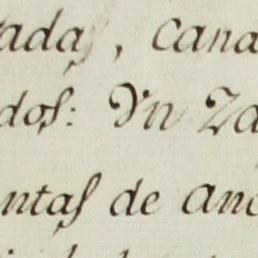 adas, cana
dos: Yn Za
ntas de anc